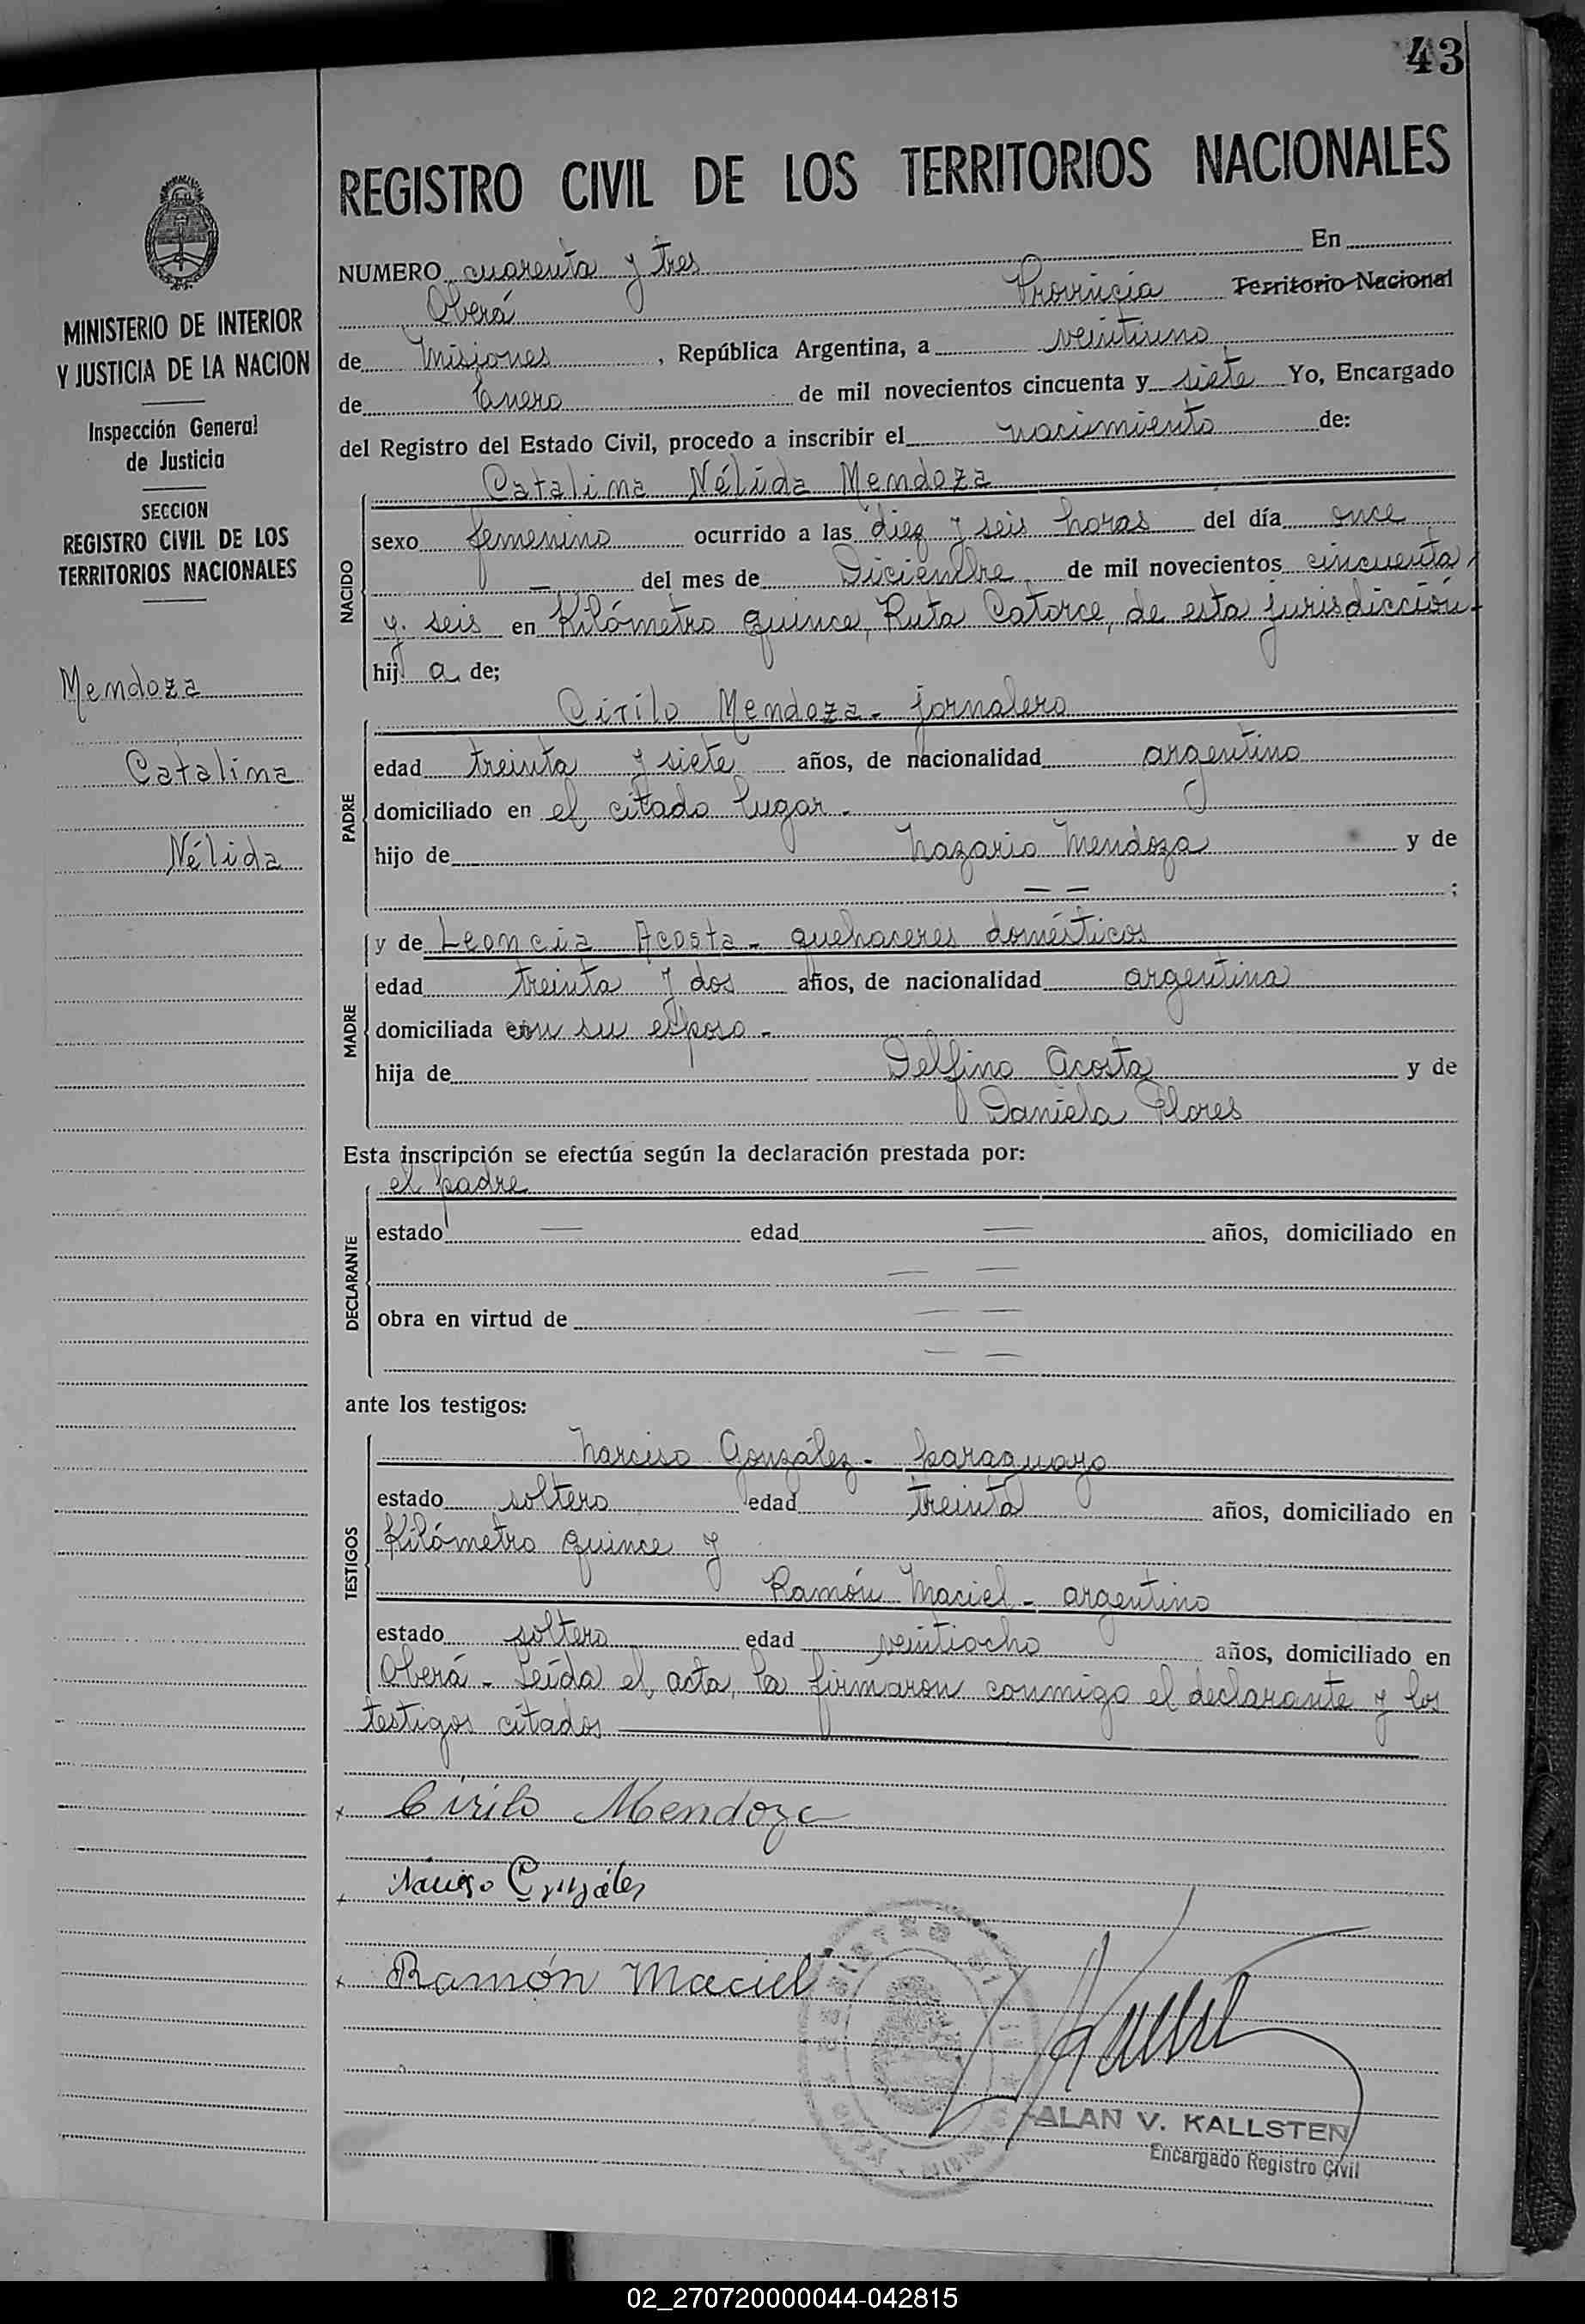 43
REGISTRO CIVIL DE LOS TERRITORIOS NACIONALES
MINISTERIO DE INTERIOR
Y JUSTICIA DE LA NACION
Inspección General
de Justicia
SECCION
REGISTRO CIVIL DE LOS
TERRITORIOS NACIONALES
Mendoza
Catalina
Nélida
NUMERO cuarenta y tres En
Oberá Provincia Territorio Nacional
de Misiones, República Argentina, a veintiuno
de Enero de mil novecientos cincuenta y siete Yo, Encargado
del Registro del Estado Civil, procedo a inscribir el nacimiento de:
Catalina Nélida Mendoza
NACIDO
sexo femenino ocurrido a las diez y seis horas del día once
— del mes de Diciembre de mil novecientos cincuenta
y seis en Kilómetro quince, Ruta Catorce, de esta jurisdicción-
hij a de;
Cirilo Mendoza - jornalero
PADRE
edad treinta y siete años, de nacionalidad argentino
domiciliado en el citado lugar -
hijo de Nazario Mendoza y de
— — ;
y de Leoncia Acosta - quehaceres domésticos
MADRE
edad treinta y dos años, de nacionalidad argentina
domiciliada con su esposo -
hija de Delfino Acosta y de
Daniela Flores
Esta inscripción se efectúa según la declaración prestada por:
el padre
DECLARANTE
estado — edad — años, domiciliado en
— —
obra en virtud de — —
— —
ante los testigos:
Narciso González - paraguayo
TESTIGOS
estado soltero edad treinta años, domiciliado en
Kilómetro quince y
Ramón Maciel - argentino
estado soltero edad veintiocho años, domiciliado en
Oberá - Leída el acta, la firmaron conmigo el declarante y los
testigos citados
x Cirilo Mendoza
x Narciso González
x Ramón Maciel
ALAN V. KALLSTEN
Encargado Registro Civil
02_270720000044-042815